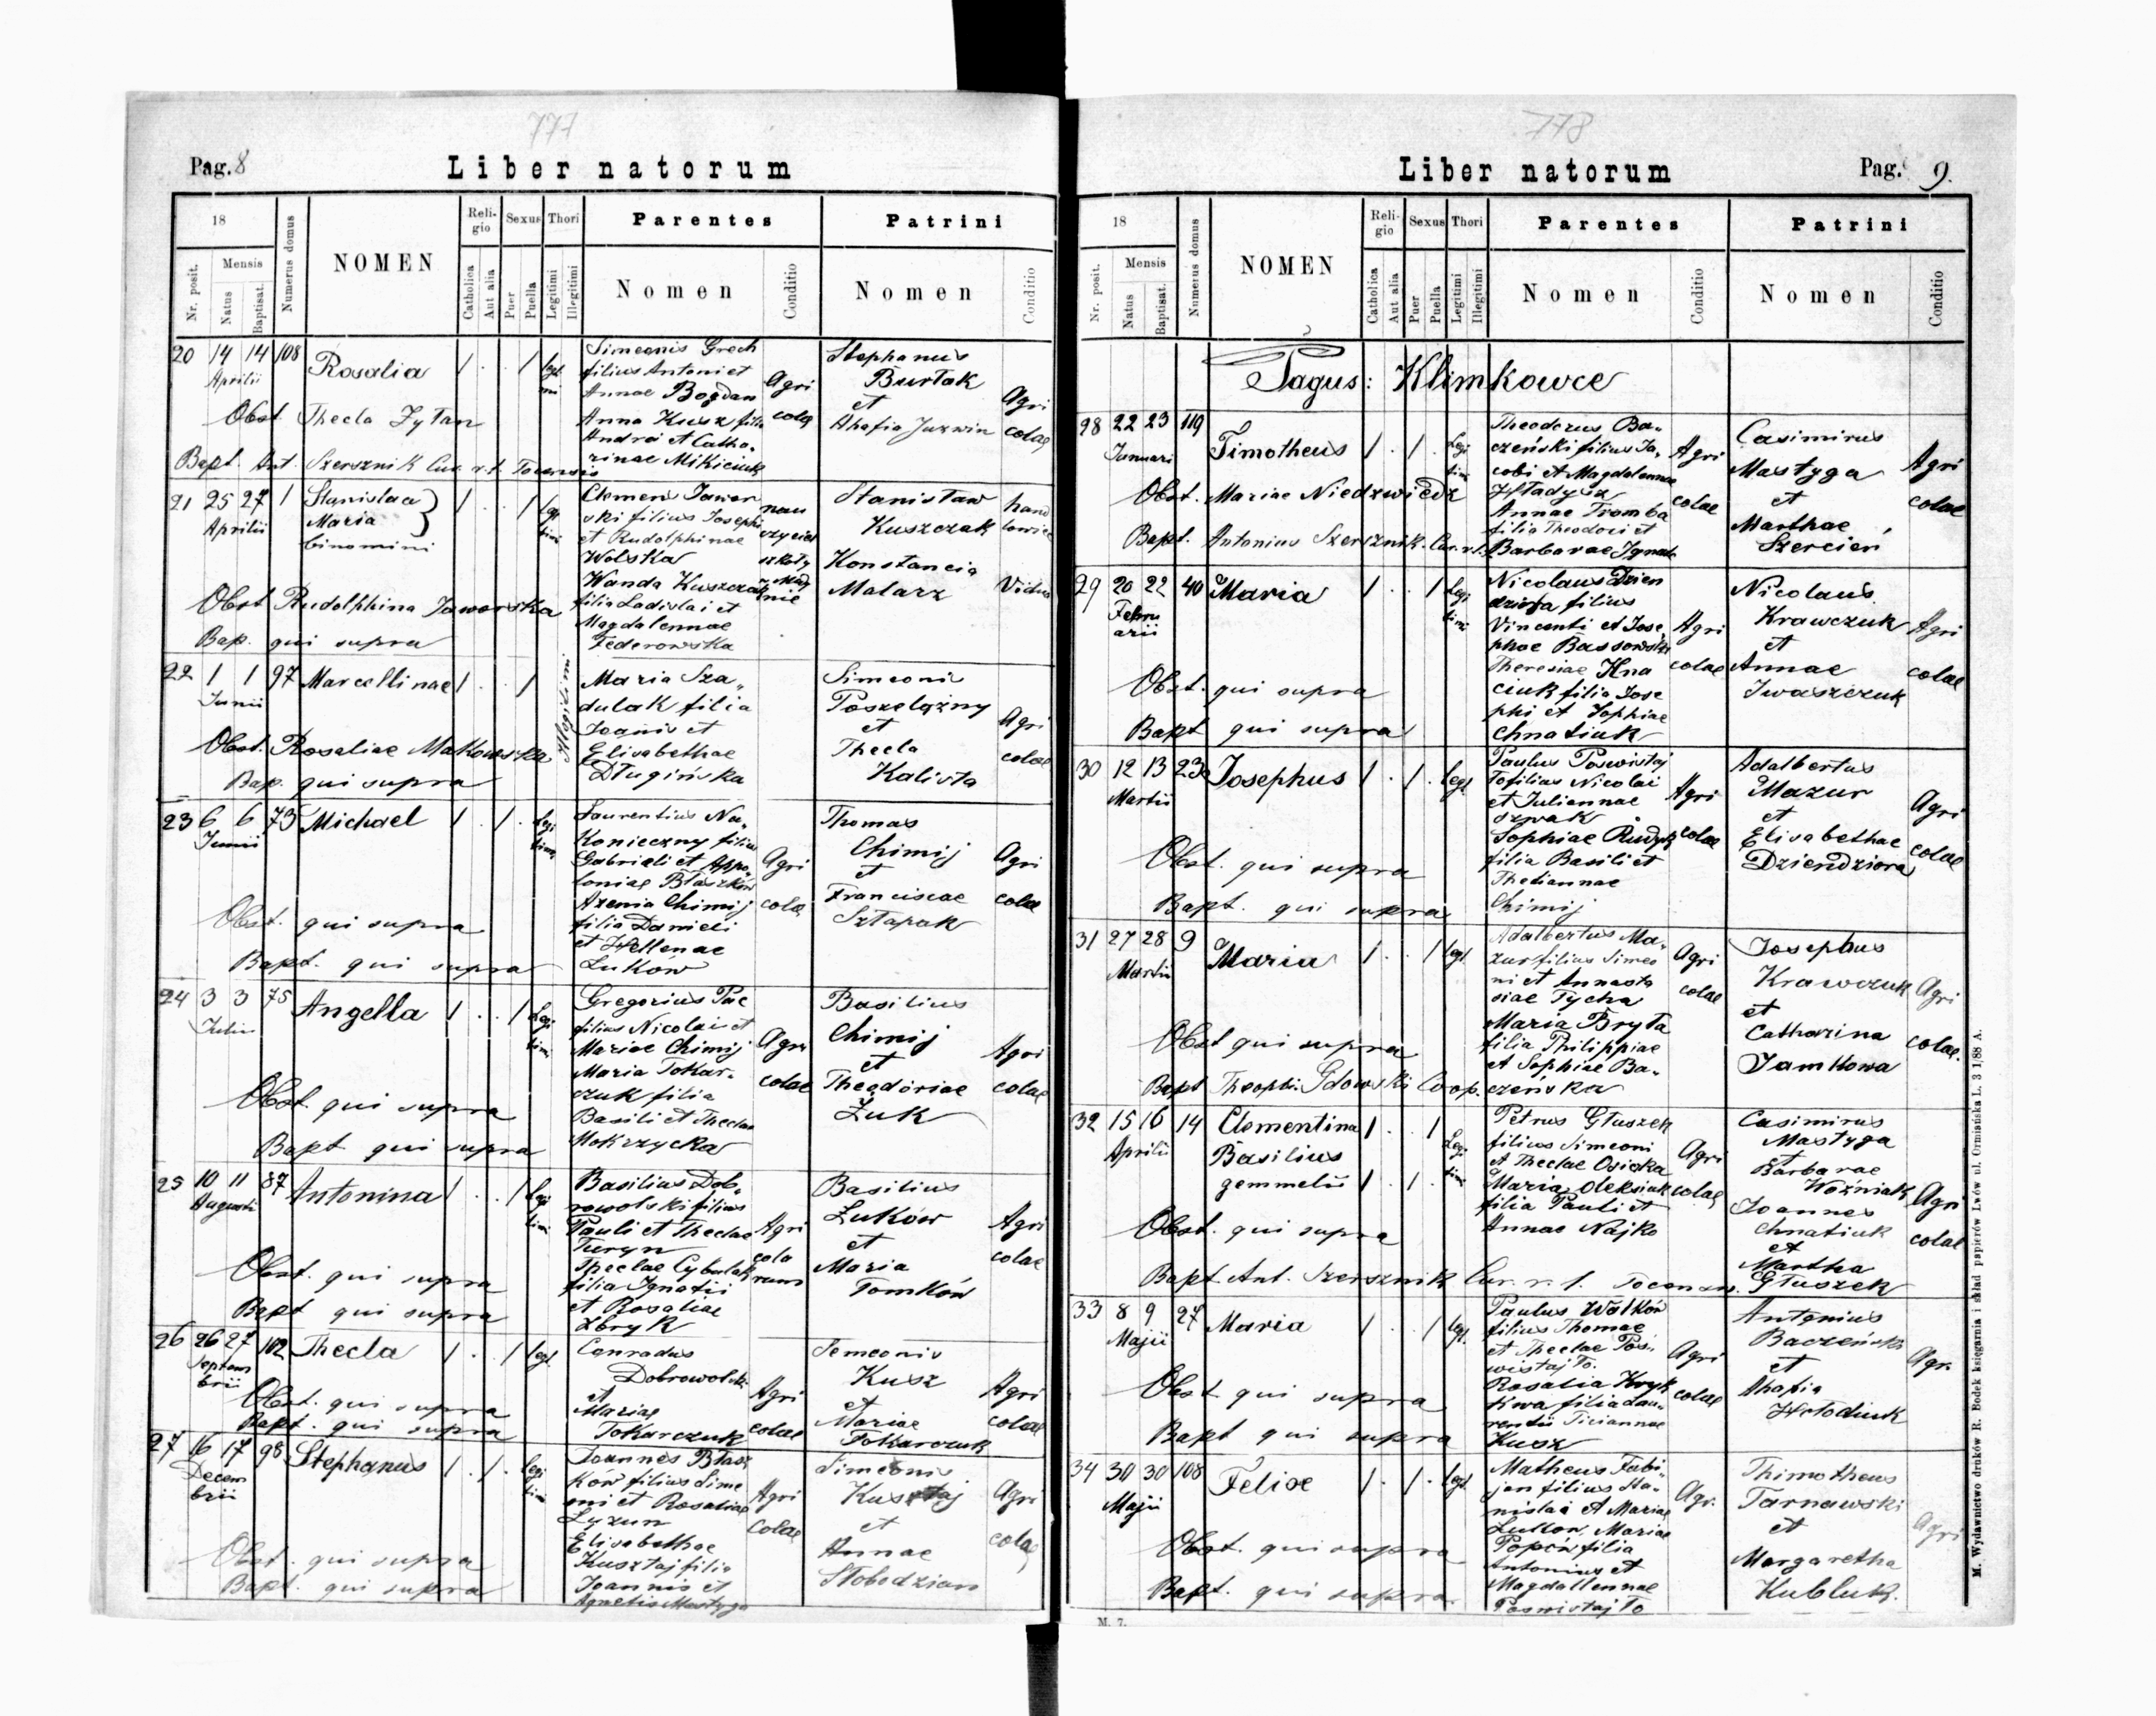 777
Pag. 8
Liber natorum
18
Nr. posit.
Mensis
Natus
Baptisat.
Numerus domus
NOMEN
Religio
Catholica
Aut alia
Sexus
Puer
Puella
Thori
Legitimi
Illegitimi
Parentes
Nomen
Conditio
Patrini
Nomen
Conditio
20 14 14 108 Rosalia 1 . . 1 legi
Aprilii
timi
Simeonis Grech
filius Antoni et
Annae Bogdan
Anna Kusz filia
Andrei et Catha-
rinae Mikiciuk
Agri
colae
Stephanus
Burtak
et
Ahafia Juzwin
Agri
colae
Obst. Thecla Zytan
Bapt. Ant. Szersznik Cur. r. l. Tocensis
21 25 27 1 Stanislaa 1 . . 1 legi
Aprilii Maria timi
binomini
Clemens Jawor
ski filius Josephi
et Rudolphinae
Wolska
Wanda Kuszczak
filia Ladislai et
Magdalennae
Federowska
nau
czyciel
szkoły
Stanisław
Kuszczak
Konstancia
Malarz
hand
lowiec
Vidua
Obst Rudolphina Jaworska
Bap. qui supra
22 1 1 97 Marcellinae 1 . . 1 Illegitimi
Junii
Maria Sza-
dulak filia
Joanis et
Elisabethae
Długińska
Simeoni
Poszelężny
et
Thecla
Kalista
Agri
colae
Obst. Rosaliae Matkowska
Bap. qui supra
23 6 6 73 Michael 1 . 1 . legi
Junii timi
Laurentius Na-
konieczny filius
Gabrieli et Appo-
loniae Błaszków
Axenia Chimij
filia Danieli
et Hellenae
Luków
Agri
colae
Thomas
Chimij
et
Franciscae
Sztapak
Agri
colae
Obst. qui supra
Bapt. qui supra
24 3 3 75 Angella 1 . . 1 Legi
Julii timi
Gregorius Pac
filius Nicolai et
Mariae Chimij
Maria Tokar-
czuk filia
Basili et Theclae
Mokrzycka
Agri
colae
Basilius
Chimij
et
Theodoriae
Żuk
Agri
colae
Obst. qui supra
Bapt qui supra
25 10 11 87 Antonina 1 . . 1 legi
Augusti timi
Basilius Dob-
rowolski filius
Pauli et Theclae
Turyn
Theclae Cybulak
filia Ignatii
et Rosaliae
Zbryk
Agri
cola
rum
Basilius
Łuków
et
Maria
Tomków
Agri
colae
Obst. qui supra
Bapt qui supra
26 26 27 102 Thecla 1 . . 1 legi
Septem
brii
Conradus
Dobrowolski
et
Mariae
Tokarczuk
Agri
colae
Semeonis
Kusz
et
Mariae
Tokarczuk
Agri
colae
Obst. qui supra
Bapt. qui supra
27 16 17 98 Stephanus 1 . 1 . legi
Decem timi
brii
Joannes Błasz
ków filius Sime
oni et Rosaliae
Lyzun
Elisabethae
Kusztaj filia
Joannis et
Agnetis Mastyga
Agri
colae
Simeonis
Kusztaj
et
Annae
Słobodzian
Agri
colae
Obst. qui supra
Bapt. qui supra
778
Liber natorum
Pag. 9.
18
Nr. posit.
Mensis
Natus
Baptisat.
Numerus domus
NOMEN
Religio
Catholica
Aut alia
Sexus
Puer
Puella
Thori
Legitimi
Illegitimi
Parentes
Nomen
Conditio
Patrini
Nomen
Conditio
Pagus: Klimkowce
28 22 23 119 Timotheus 1 . 1 . Legi
Januari timi
Theodorus Ba-
czeński filius Ja-
cobi et Magdalenna
Hładysz
Annae Tromba
filia Theodori et
Barbarae Ignat
Agri
colae
Casimirus
Mastyga
et
Marthae
Szercień
Agri
colae
Obst. Mariae Niedzwiedz
Bapt. Antonius Szersznik. Cur. r. l.
29 20 22 40 Maria 1 . . 1 Legi
Febru timi
arii
Nicolaus Dzien
dziora filius
Vincenti et Jose-
phae Bassowska
Theresiae Hna
ciuk filia Jose
phi et Sophiae
Chnatiuk
Agri
colae
Nicolaus
Krawczuk
et
Annae
Iwaszczuk
Agri
colae
Obst. qui supra
Bapt qui supra
30 12 13 23 Josephus 1 . 1 . legi
Martii
Paulus Poswistaj
To filius Nicolai
et Juliannae
Szwak
Sophiae Rudyk
filia Basili et
Thetiannae
Chimij
Agri
colae
Adalbertus
Mazur
et
Elisabethae
Dziendziora
Agri
colae
Obst. qui supra
Bapt. qui supra
31 27 28 9 Maria 1 . . 1 legi
Martii
Adalbertus Ma-
zur filius Simeo
ni et Annasta
siae Tycha
Maria Bryta
filia Philippiae
et Sophiae Ba-
czeńska
Agri
colae
Josephus
Krawczuk
et
Catharina
Jamkowa
Agri
colae.
Obst qui supra
Bapt Theophi. Gdowski Coop.
32 15 16 14 Clementina 1 . . 1
Aprili Basilius Legi
gemmelii 1 . 1 . timi
Petrus Głuszek
filius Simeoni
et Theclae Osicka
Maria Oleksiuk
filia Pauli et
Annae Najko
Agri
colae
Casimirus
Mastyga
et
Barbarae
Woźniak
Joannes
Chnatiuk
et
Martha
Głuszek
Agri
colae
Obst. qui supra
Bapt. Ant. Szersznik Cur. r. l. Tocensis.
33 8 9 27 Maria 1 . . 1 legi.
Majii
Paulus Wołków
filius Thomae
et Theclae Pos-
wistajto.
Rosalia Kryk
kwa filia Lau-
rentii Ticiannae
Kusz
Agri
colae
Antonius
Baczeński
et
Ahafia
Hołodiuk
Agr.
Obst. qui supra
Bapt qui supra
34 30 30 108 Felix 1 . 1 . legi.
Majii
Matheus Fabi-
jan filius Sta-
nislai et Mariae
Lukow. Mariae
Popów filia
Antonius et
Magdallennae
Poswistajto
Agr.
Thimotheus
Tarnawski
et
Margaretha
Kubluk.
Agri
Obst. qui supra
Bapt. qui supra.
M. 7.
M. Wydawnictwo druków R. Bodek księgarnia i skład papierów Lwów ul. Ormiańska L. 3 1/88 A.